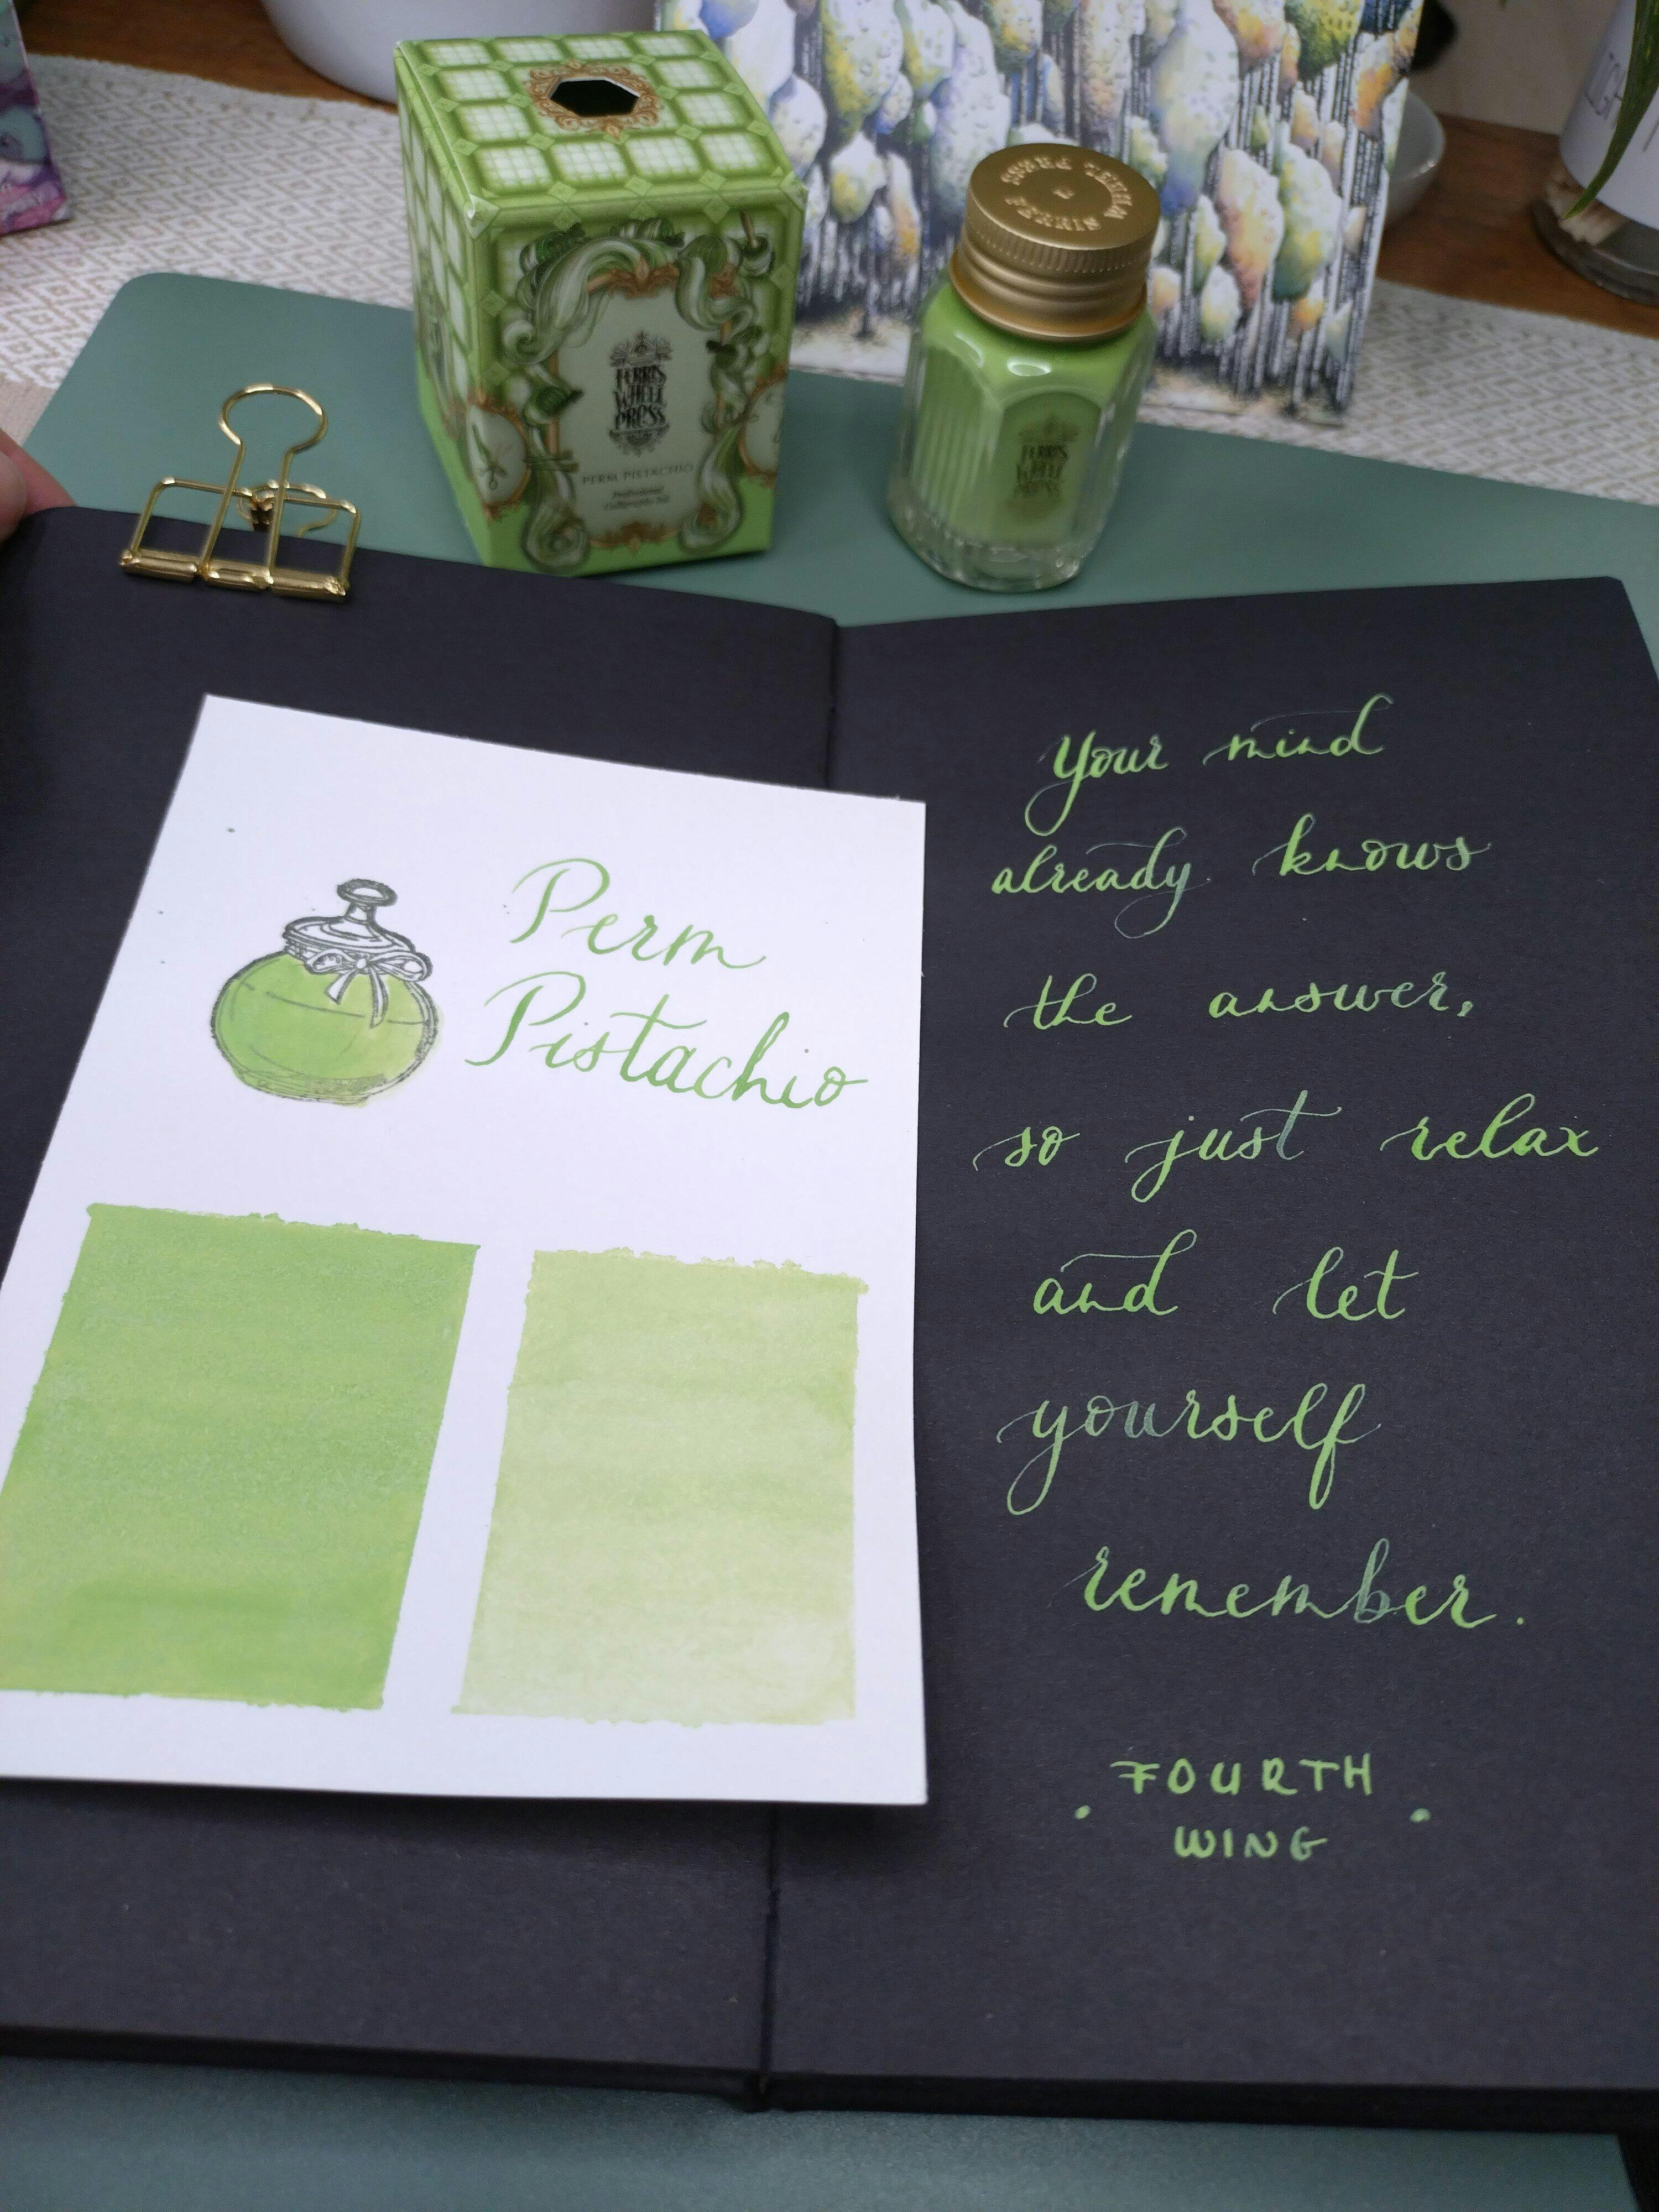 FERRIS WHEEL PRESS
FERRIS
WHEEL
PRESS
PERM PISTACHIO
Professional
Calligraphy Ink
FERRIS
WHEEL
PRESS
Perm
Pistachio
Your mind
already knows
the answer,
so just relax
and let
yourself
remember.
FOURTH
WING